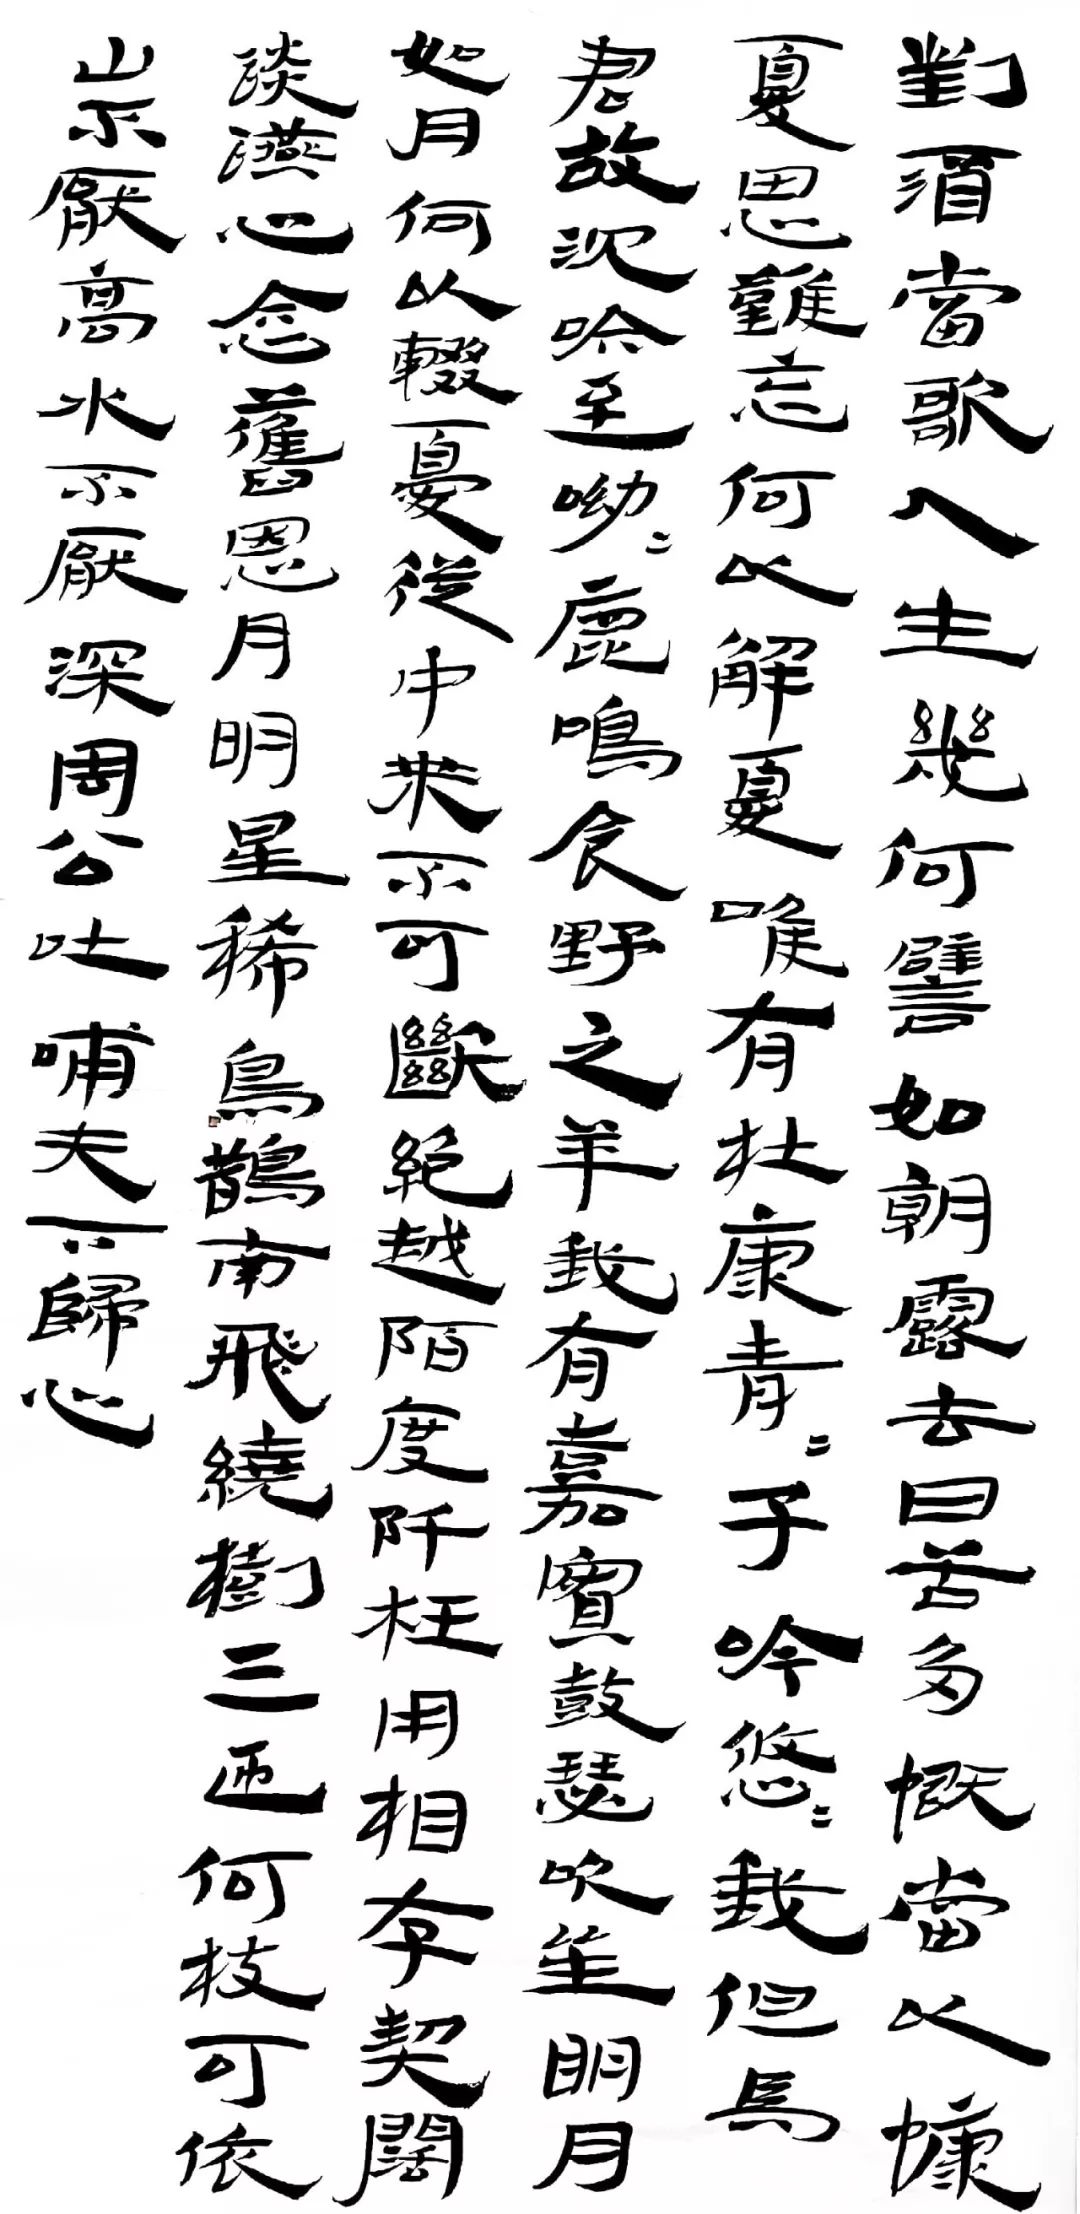 對酒當歌人生幾何譬如朝露去日苦多慨當以慷
憂思難忘何以解憂唯有杜康青〻子吟悠〻我但為
君故沈吟至呦〻鹿鳴食野之苹我有嘉賓鼓瑟吹笙明月
如月何以輟憂從中來不可斷絕越陌度阡枉用相存契闊
談讌心念舊恩月明星稀烏鵲南飛繞樹三匝何枝可依
山不厭高水不厭深周公吐哺天下歸心